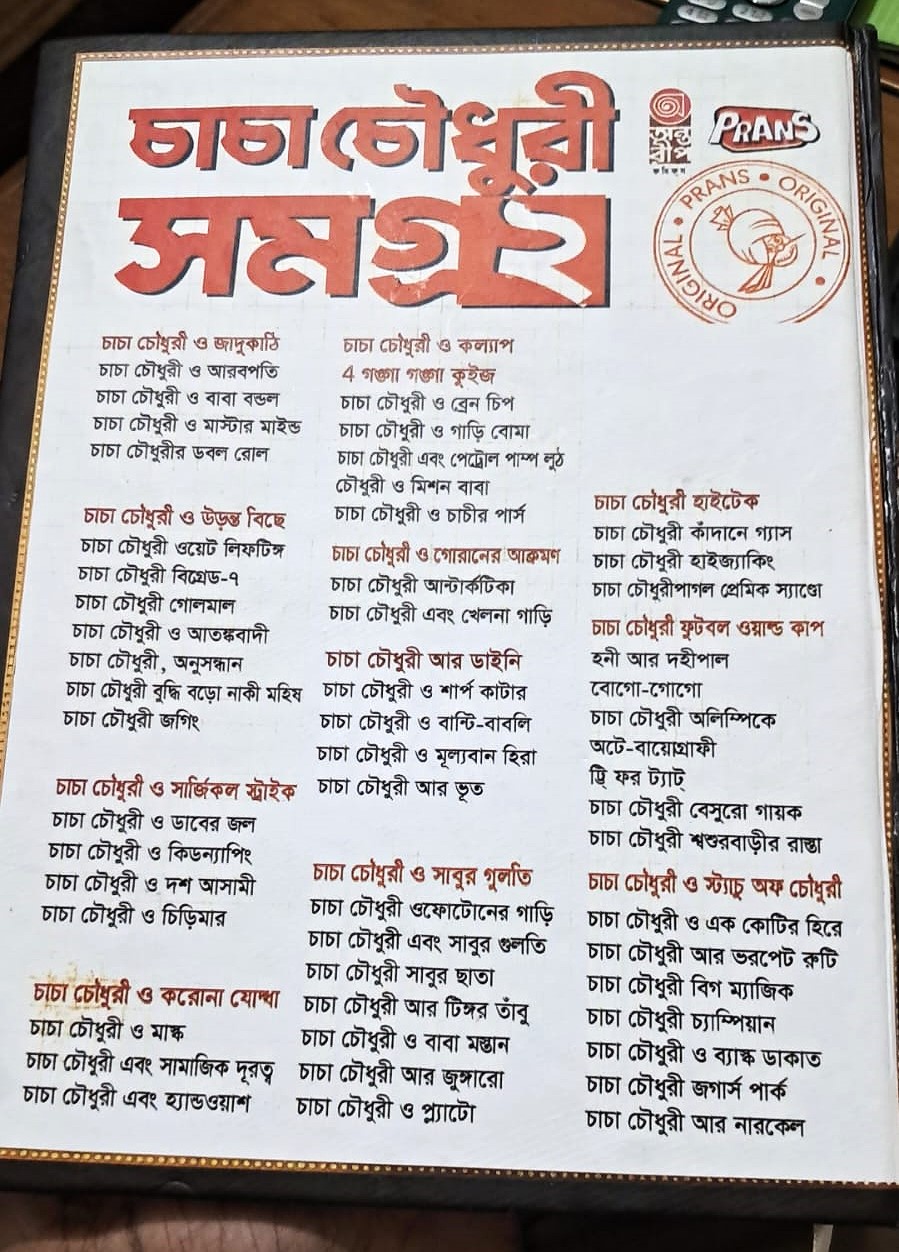 চাচা চৌধুরী
সমগ্র ২
অন্তরীপ
কমিকস
PRANS
ORIGINAL • PRANS • ORIGINAL •
চাচা চৌধুরী ও জাদুকাঠি
চাচা চৌধুরী ও আরবপতি
চাচা চৌধুরী ও বাবা বন্ডল
চাচা চৌধুরী ও মাস্টার মাইন্ড
চাচা চৌধুরীর ডবল রোল
চাচা চৌধুরী ও উড়ন্ত বিছে
চাচা চৌধুরী ওয়েট লিফটিঙ্গ
চাচা চৌধুরী বিগ্রেড-৭
চাচা চৌধুরী গোলমাল
চাচা চৌধুরী ও আতঙ্কবাদী
চাচা চৌধুরী, অনুসন্ধান
চাচা চৌধুরী বুদ্ধি বড়ো নাকী মহিষ
চাচা চৌধুরী জগিং
চাচা চৌধুরী ও সার্জিকল স্ট্রাইক
চাচা চৌধুরী ও ডাবের জল
চাচা চৌধুরী ও কিডন্যাপিং
চাচা চৌধুরী ও দশ আসামী
চাচা চৌধুরী ও চিড়িমার
চাচা চৌধুরী ও করোনা যোদ্ধা
চাচা চৌধুরী ও মাস্ক
চাচা চৌধুরী এবং সামাজিক দূরত্ব
চাচা চৌধুরী এবং হ্যান্ডওয়াশ
চাচা চৌধুরী ও কল্যাপ
4 গঙ্গা গঙ্গা কুইজ
চাচা চৌধুরী ও ব্রেন চিপ
চাচা চৌধুরী ও গাড়ি বোমা
চাচা চৌধুরী এবং পেট্রোল পাম্প লুঠ
চৌধুরী ও মিশন বাবা
চাচা চৌধুরী ও চাচীর পার্স
চাচা চৌধুরী ও গোরানের আক্রমণ
চাচা চৌধুরী আন্টার্কটিকা
চাচা চৌধুরী এবং খেলনা গাড়ি
চাচা চৌধুরী আর ডাইনি
চাচা চৌধুরী ও শার্প কাটার
চাচা চৌধুরী ও বান্টি-বাবলি
চাচা চৌধুরী ও মূল্যবান হিরা
চাচা চৌধুরী আর ভূত
চাচা চৌধুরী ও সাবুর গুলতি
চাচা চৌধুরী ওফোটোনের গাড়ি
চাচা চৌধুরী এবং সাবুর গুলতি
চাচা চৌধুরী সাবুর ছাতা
চাচা চৌধুরী আর টিঙ্গর তাঁবু
চাচা চৌধুরী ও বাবা মস্তান
চাচা চৌধুরী আর জুঙ্গারো
চাচা চৌধুরী ও প্ল্যাটো
চাচা চৌধুরী হাইটেক
চাচা চৌধুরী কাঁদানে গ্যাস
চাচা চৌধুরী হাইজ্যাকিং
চাচা চৌধুরীপাগল প্রেমিক স্যাণ্ডো
চাচা চৌধুরী ফুটবল ওয়াল্ড কাপ
হনী আর দহীপাল
বোগো-গোগো
চাচা চৌধুরী অলিম্পিকে
অটে-বায়োগ্রাফী
ট্রি ফর ট্যাট্
চাচা চৌধুরী বেসুরো গায়ক
চাচা চৌধুরী শ্বশুরবাড়ীর রাস্তা
চাচা চৌধুরী ও স্ট্যাচু অফ চৌধুরী
চাচা চৌধুরী ও এক কোটির হিরে
চাচা চৌধুরী আর ভরপেট রুটি
চাচা চৌধুরী বিগ ম্যাজিক
চাচা চৌধুরী চ্যাম্পিয়ান
চাচা চৌধুরী ও ব্যাঙ্ক ডাকাত
চাচা চৌধুরী জগার্স পার্ক
চাচা চৌধুরী আর নারকেল